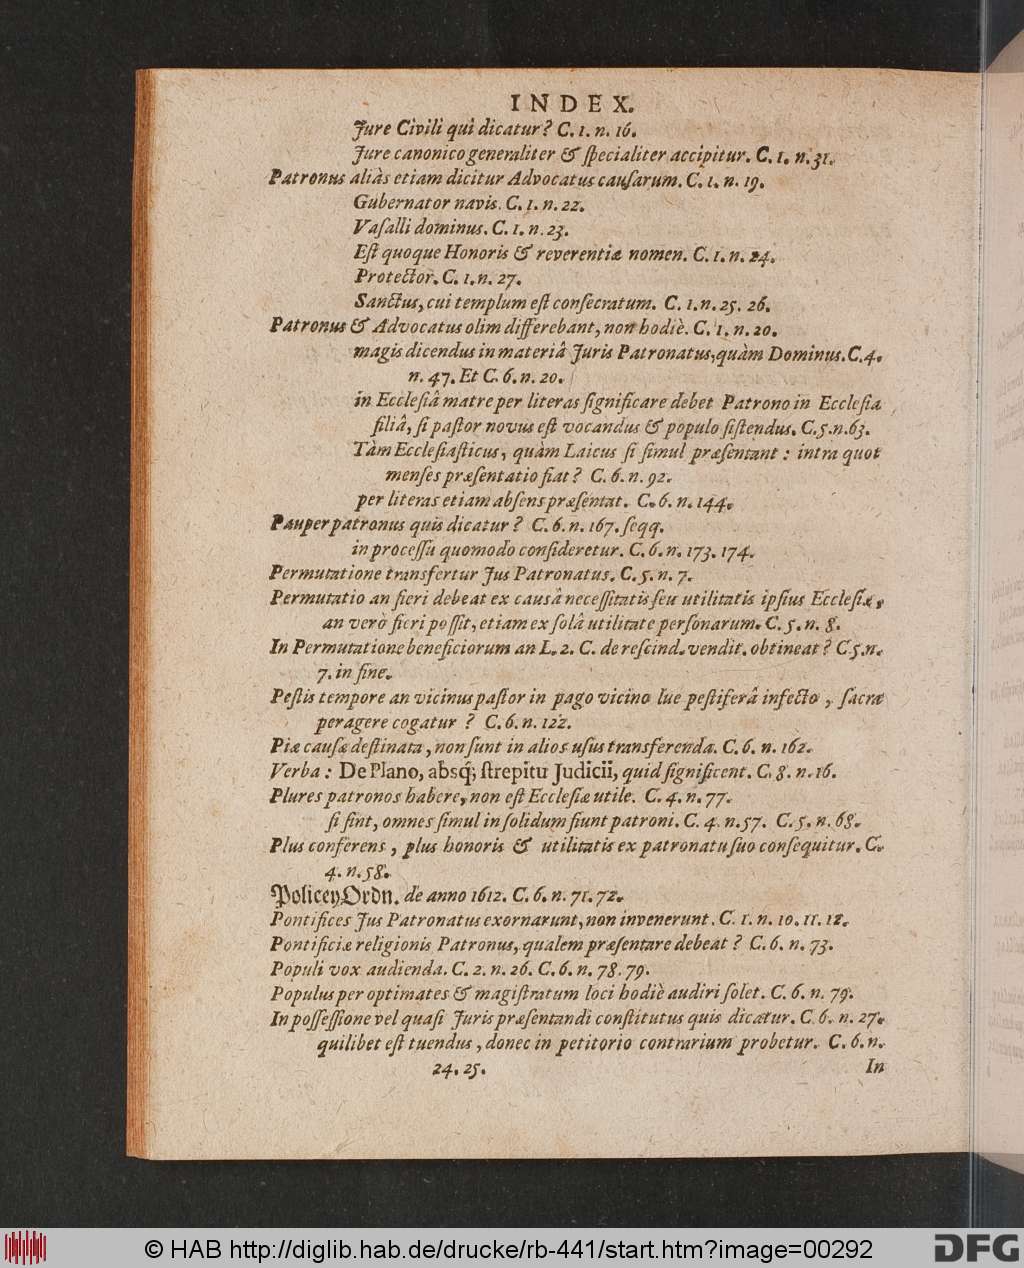 INDEX.
Jure Civili qui dicatur? C. 1. n. 16.
Jure canonico generaliter & ſpecialiter accipitur. C. 1. n. 31.
Patronus aliàs etiam dicitur Advocatus cauſarum. C. 1. n. 19.
Gubernator navis. C. 1. n. 22.
Vaſalli dominus. C. 1. n. 23.
Eſt quoque Honoris & reverentiæ nomen. C. 1. n. 24.
Protector. C. 1. n. 27.
Sanctus, cui templum eſt conſecratum. C. 1. n. 25. 26.
Patronus & Advocatus olim differebant, non hodiè. C. 1. n. 20.
magis dicendus in materiâ Juris Patronatus, quàm Dominus. C. 4.
n. 47. Et C. 6. n. 20.
in Eccleſiâ matre per literas ſignificare debet Patrono in Eccleſia
filiâ, ſi paſtor novus eſt vocandus & populo ſiſtendus. C. 5. n. 63.
Tàm Eccleſiaſticus, quàm Laicus ſi ſimul præſentant: intra quot
menſes præſentatio fiat? C. 6. n. 92.
per literas etiam abſens præſentat. C. 6. n. 144.
Pauper patronus quis dicatur? C. 6. n. 167. ſeqq.
in proceſſu quomodo conſideretur. C. 6. n. 173. 174.
Permutatione transfertur Jus Patronatus. C. 5. n. 7.
Permutatio an fieri debeat ex causâ neceſſitatis ſeu utilitatis ipſius Eccleſiæ,
an verò fieri poſſit, etiam ex ſolâ utilitate perſonarum. C. 5. n. 8.
In Permutatione beneficiorum an L. 2. C. de reſcind. vendit. obtineat? C 5. n.
7. in fine.
Peſtis tempore an vicinus paſtor in pago vicino lue peſtiferâ infecto, ſacra
peragere cogatur? C. 6. n. 122.
Piæ cauſæ deſtinata, non ſunt in alios uſus transferenda. C. 6. n. 162.
Verba: De Plano, absq; ſtrepitu Judicii, quid ſignificent. C. 8. n. 16.
Plures patronos habere, non eſt Eccleſiæ utile. C. 4. n. 77.
ſi ſint, omnes ſimul in ſolidum fiunt patroni. C. 4. n. 57. C. 5. n. 68.
Plus conferens, plus honoris & utilitatis ex patronatu ſuo conſequitur. C.
4. n. 58.
Policey Ordn. de anno 1612. C. 6. n. 71. 72.
Pontifices Jus Patronatus exornarunt, non invenerunt. C. 1. n. 10. 11. 12.
Pontificiæ religionis Patronus, qualem præſentare debeat? C. 6. n. 73.
Populi vox audienda. C. 2. n. 26. C. 6. n. 78. 79.
Populus per optimates & magiſtratum loci hodiè audiri ſolet. C. 6. n. 79.
In poſſeſſione vel quaſi Juris præſentandi conſtitutus quis dicatur. C. 6. n. 27.
quilibet eſt tuendus, donec in petitorio contrarium probetur. C. 6. n.
24. 25. In
© HAB http://diglib.hab.de/drucke/rb-441/start.htm?image=00292
DFG